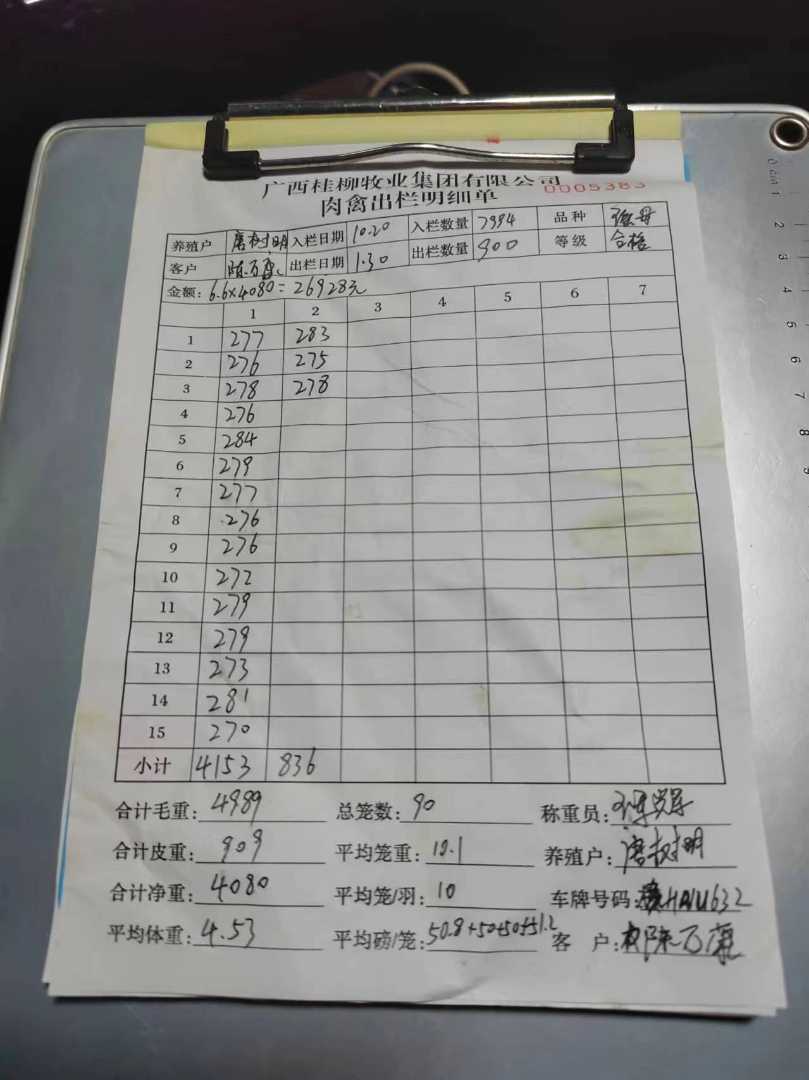 广西桂柳牧业集团有限公司
0005383
肉禽出栏明细单
养殖户 唐树明 入栏日期 10.20 入栏数量 7994 品种
客户 陈万康 出栏日期 1.30 出栏数量 900 等级 合格
金额: 6.6×4080=26928元
1 2 3 4 5 6 7
1 277 283
2 276 275
3 278 278
4 276
5 284
6 279
7 277
8 276
9 276
10 272
11 279
12 279
13 273
14 281
15 270
小计 4153 836
合计毛重: 4989 总笼数: 90 称重员:
合计皮重: 909 平均笼重: 10.1 养殖户: 唐树明
合计净重: 4080 平均笼/羽: 10 车牌号码:
平均体重: 4.53 平均磅/笼: 50.8+50+50+51.2 客 户: 陈万康